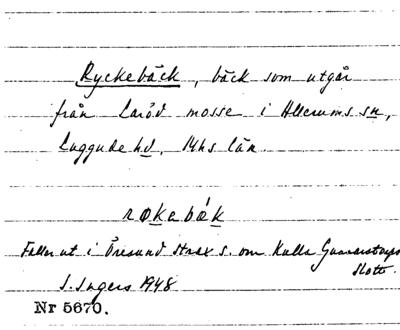 Ryckebäck, bäck som utgår
från Laröd mosse i Allerums sn,
Luggude hd, Mhs län.
røkebǽk
Faller ut i Öresund strax s. om Kulla Gunnarstorps
slott.
S. Ingers 1948
Nr 5670.